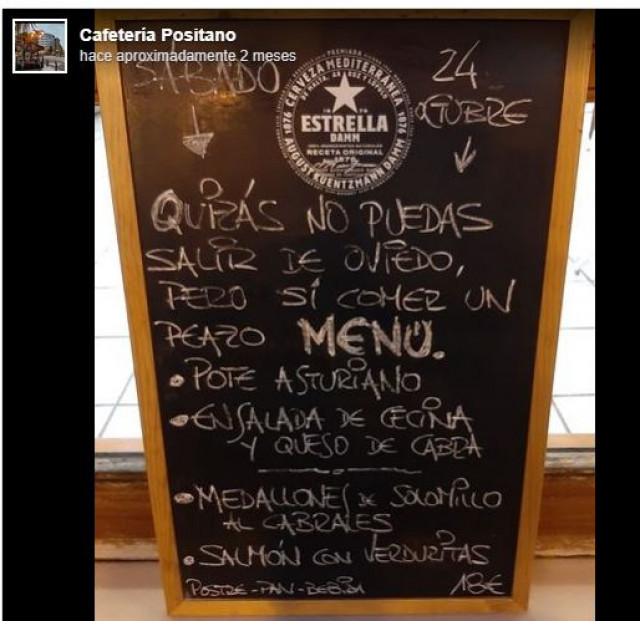 Cafetería Positano
hace aproximadamente 2 meses
SÁBADO
24
OCTUBRE
CERVEZA MEDITERRÁNEA
1876
1876
ESTRELLA
DAMM
RECETA ORIGINAL
1876
AUGUST KUENTZMANN DAMM
QUIZÁS NO PUEDAS
SALIR DE OVIEDO,
PERO SÍ COMER UN
PEAZO MENÚ.
• POTE ASTURIANO
• ENSALADA DE CECINA
Y QUESO DE CABRA
• MEDALLONES DE SOLOMILLO
AL CABRALES
• SALMÓN CON VERDURITAS
POSTRE-PAN-BEBIDA 18€